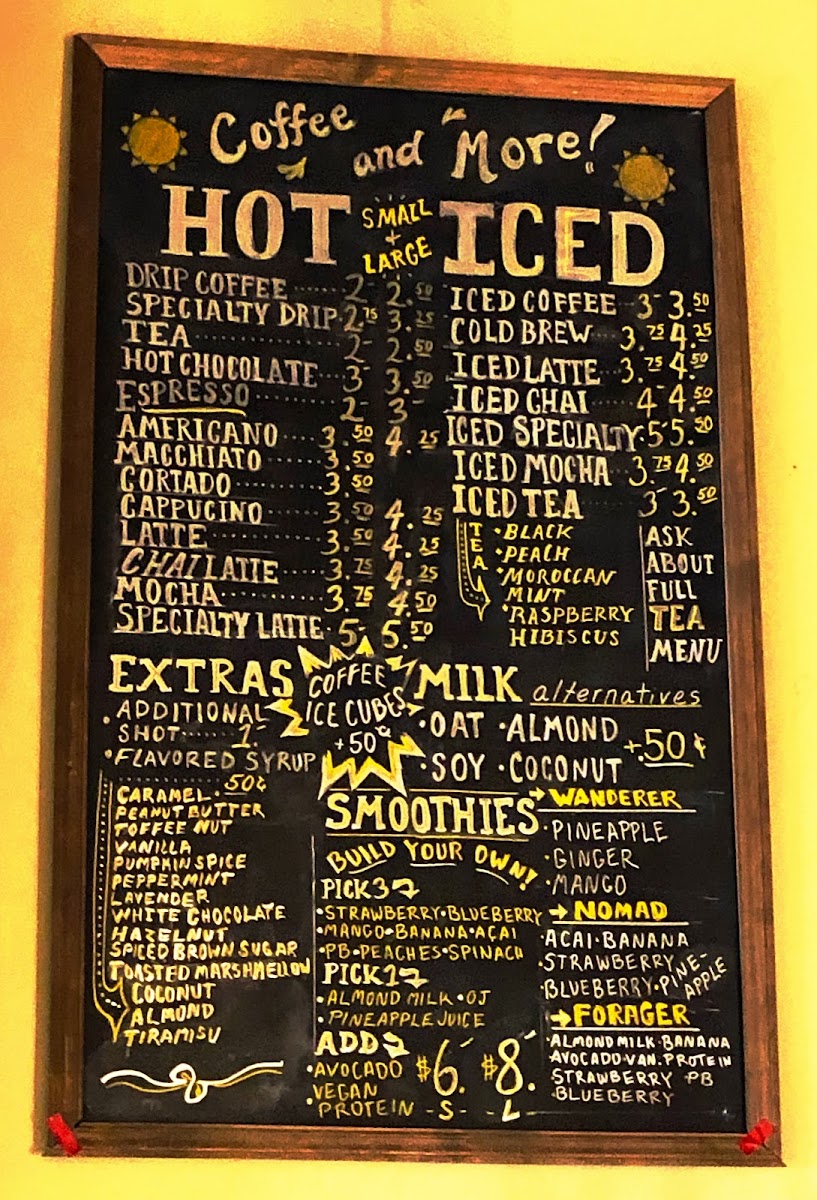 Coffee and "More!"
HOT
SMALL
+
LARGE
DRIP COFFEE 2- 2.50
SPECIALTY DRIP 2.75 3.25
TEA 2- 2.50
HOT CHOCOLATE 3- 3.50
ESPRESSO 2- 3-
AMERICANO 3.50 4.25
MACCHIATO 3.50
CORTADO 3.50
CAPPUCINO 3.50 4.25
LATTE 3.50 4.25
CHAI LATTE 3.75 4.25
MOCHA 3.75 4.50
SPECIALTY LATTE 5- 5.50
ICED
ICED COFFEE 3- 3.50
COLD BREW 3.75 4.25
ICED LATTE 3.75 4.50
ICED CHAI 4- 4.50
ICED SPECIALTY 5- 5.50
ICED MOCHA 3.75 4.50
ICED TEA 3- 3.50
TEA
•BLACK
•PEACH
•MOROCCAN
MINT
•RASPBERRY
HIBISCUS
ASK
ABOUT
FULL
TEA
MENU
EXTRAS
•ADDITIONAL
SHOT 1-
•FLAVORED SYRUP
.50¢
CARAMEL
PEANUT BUTTER
TOFFEE NUT
VANILLA
PUMPKIN SPICE
PEPPERMINT
LAVENDER
WHITE CHOCOLATE
HAZELNUT
SPICED BROWN SUGAR
TOASTED MARSHMELLOW
COCONUT
ALMOND
TIRAMISU
COFFEE
ICE CUBES
+50¢
MILK alternatives
•OAT •ALMOND
•SOY •COCONUT
+.50¢
SMOOTHIES
BUILD YOUR OWN!
PICK 3
•STRAWBERRY•BLUEBERRY
•MANGO•BANANA•AÇAI
•PB•PEACHES•SPINACH
PICK 1
•ALMOND MILK •OJ
•PINEAPPLE JUICE
ADD
•AVOCADO
•VEGAN
PROTEIN
$6- $8-
-S- -L-
→WANDERER
•PINEAPPLE
•GINGER
•MANGO
→NOMAD
•ACAI•BANANA
•STRAWBERRY
•BLUEBERRY•PINE-
APPLE
→FORAGER
•ALMOND MILK•BANANA
AVOCADO•VAN. PROTEIN
STRAWBERRY •PB
BLUEBERRY